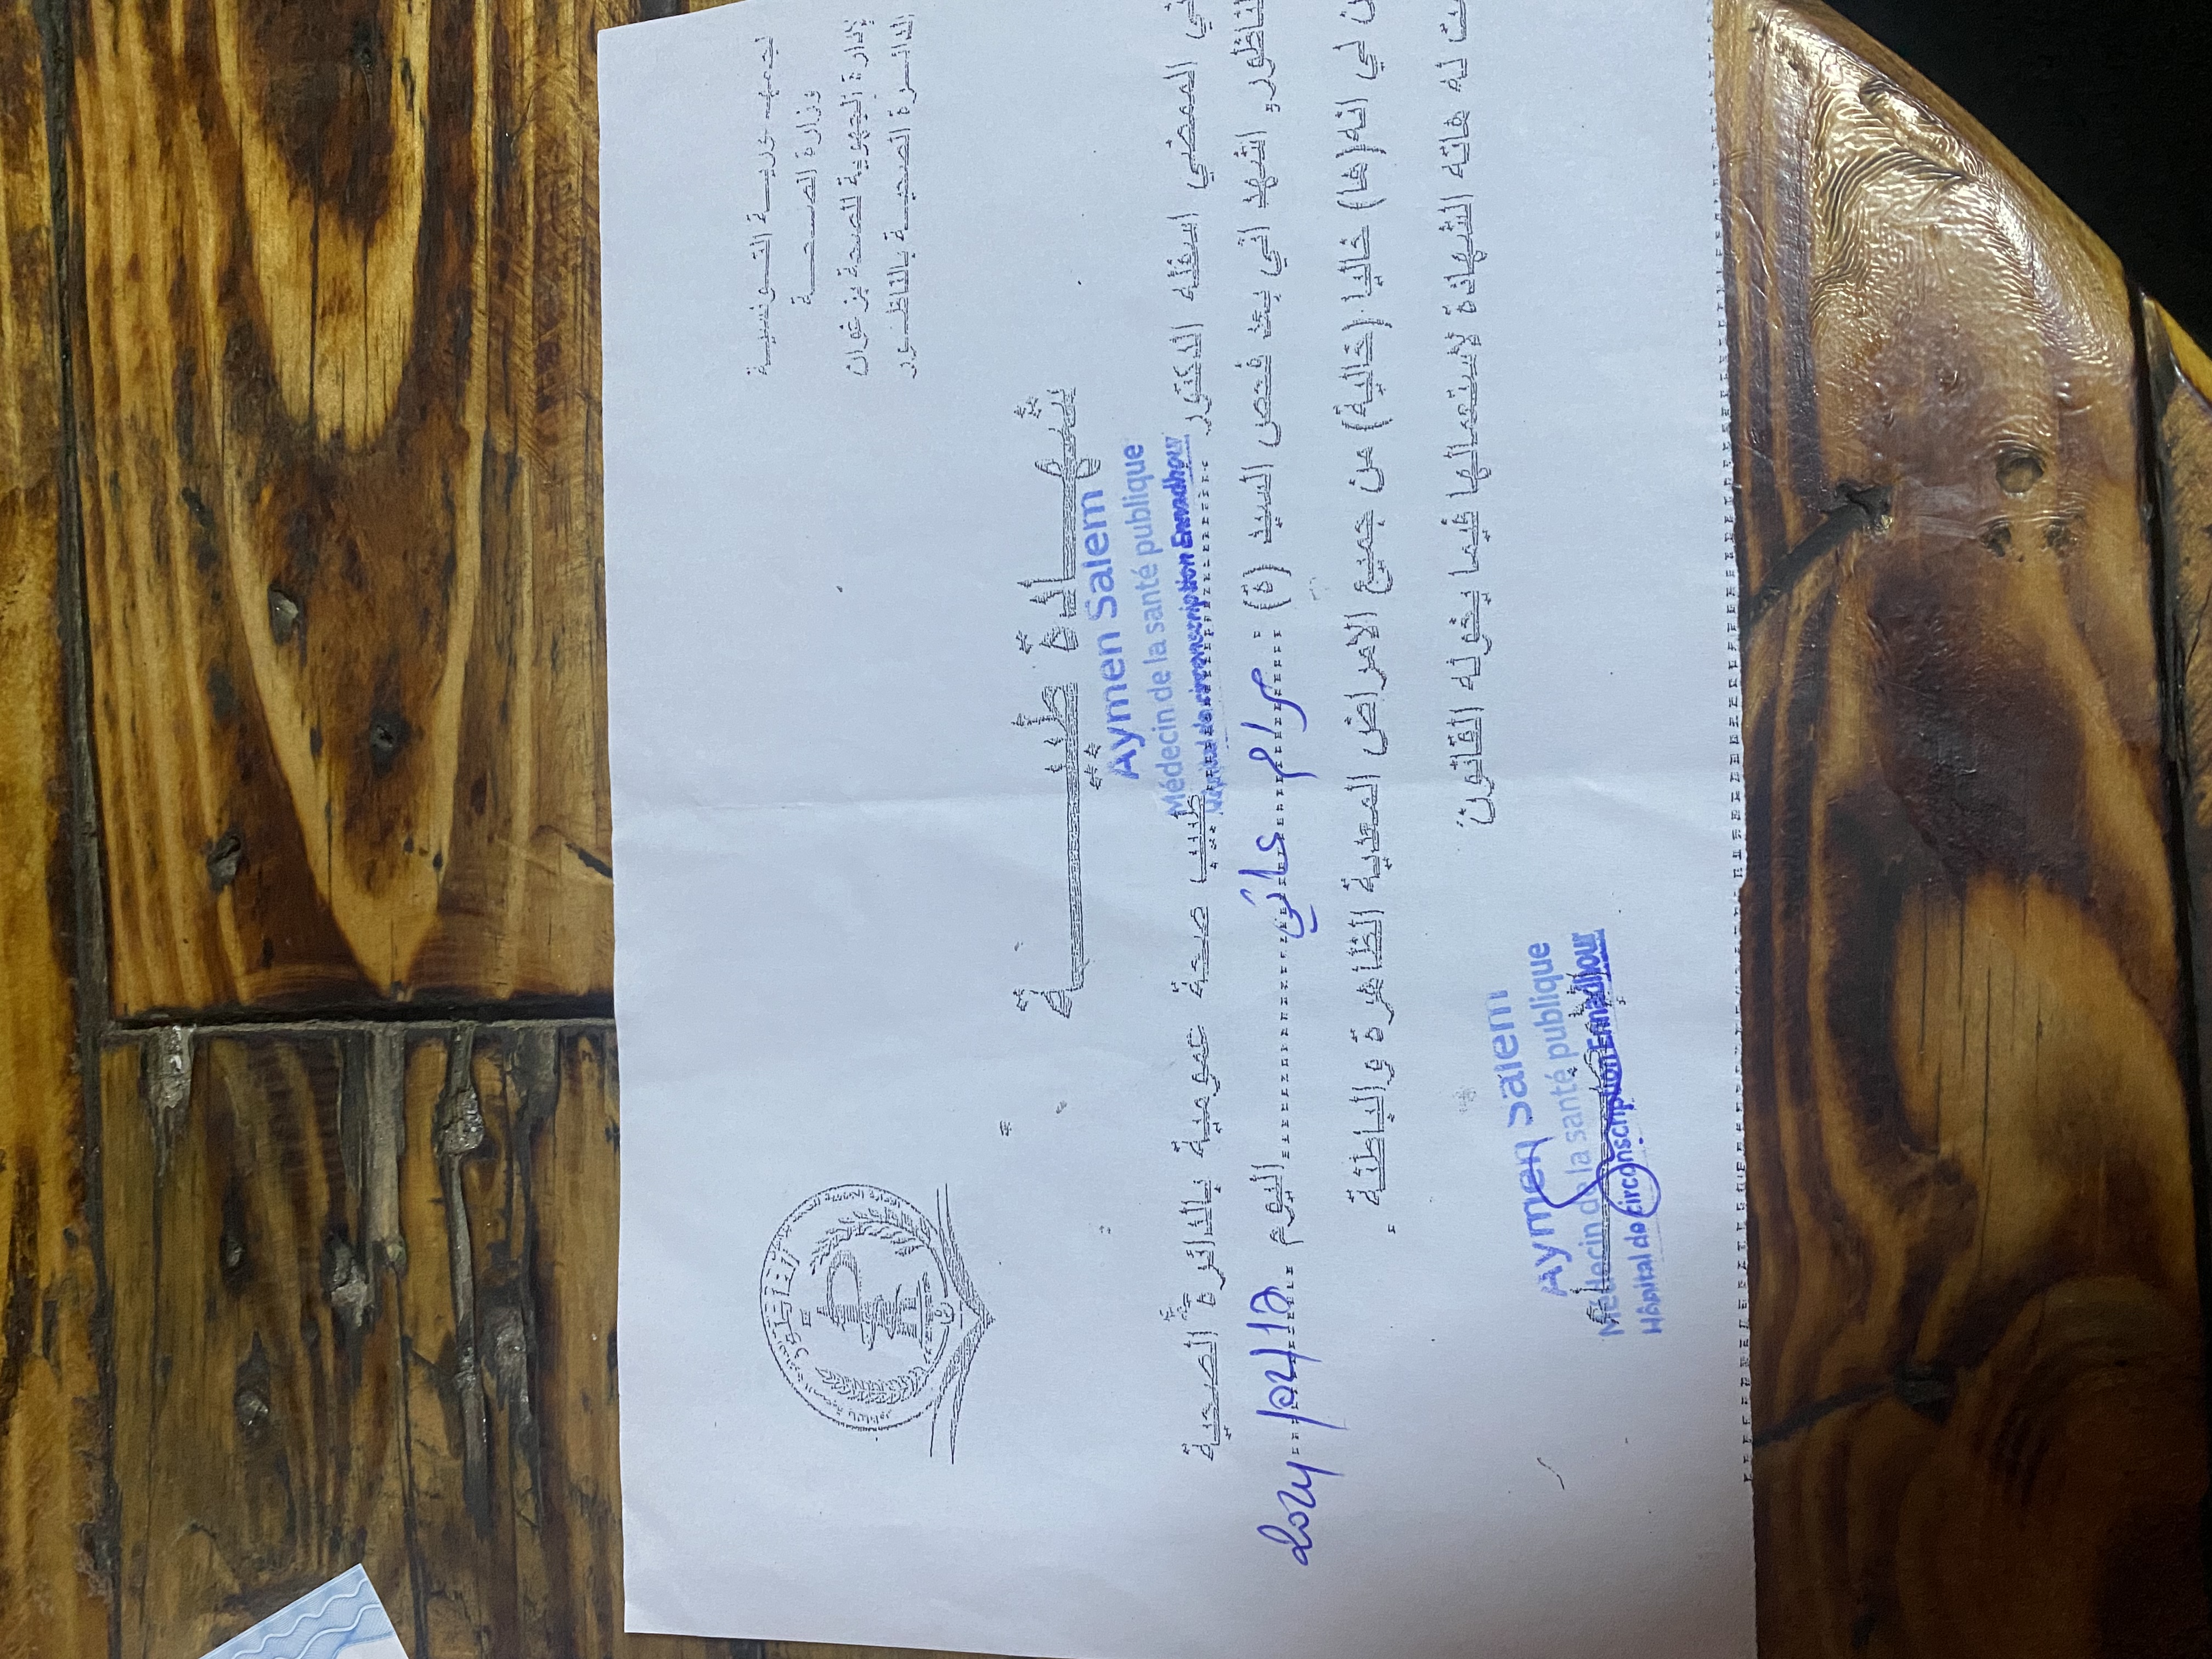 الجمهورية التونسية
وزارة الصحة
الإدارة الجهوية للصحة بزغوان
الدائرة الصحية بالناظور
شهادة طبية
Aymen Salem
Médecin de la santé publique
Hôpital de circonscription Ennadhour
الممضي اسفله الدكتور طبيب صحة عمومية بالدائرة الصحية
اشهد اني بعد فحص السيد (ة) مرام عائي اليوم
لي انه(ها) خاليا (خالية) من جميع الامراض المعدية الظاهرة و الباطنة .
له هاته الشهادة لاستعمالها فيما يخوله القانون
Aymen Salem
Médecin de la santé publique
Hôpital de circonscription Ennadhour